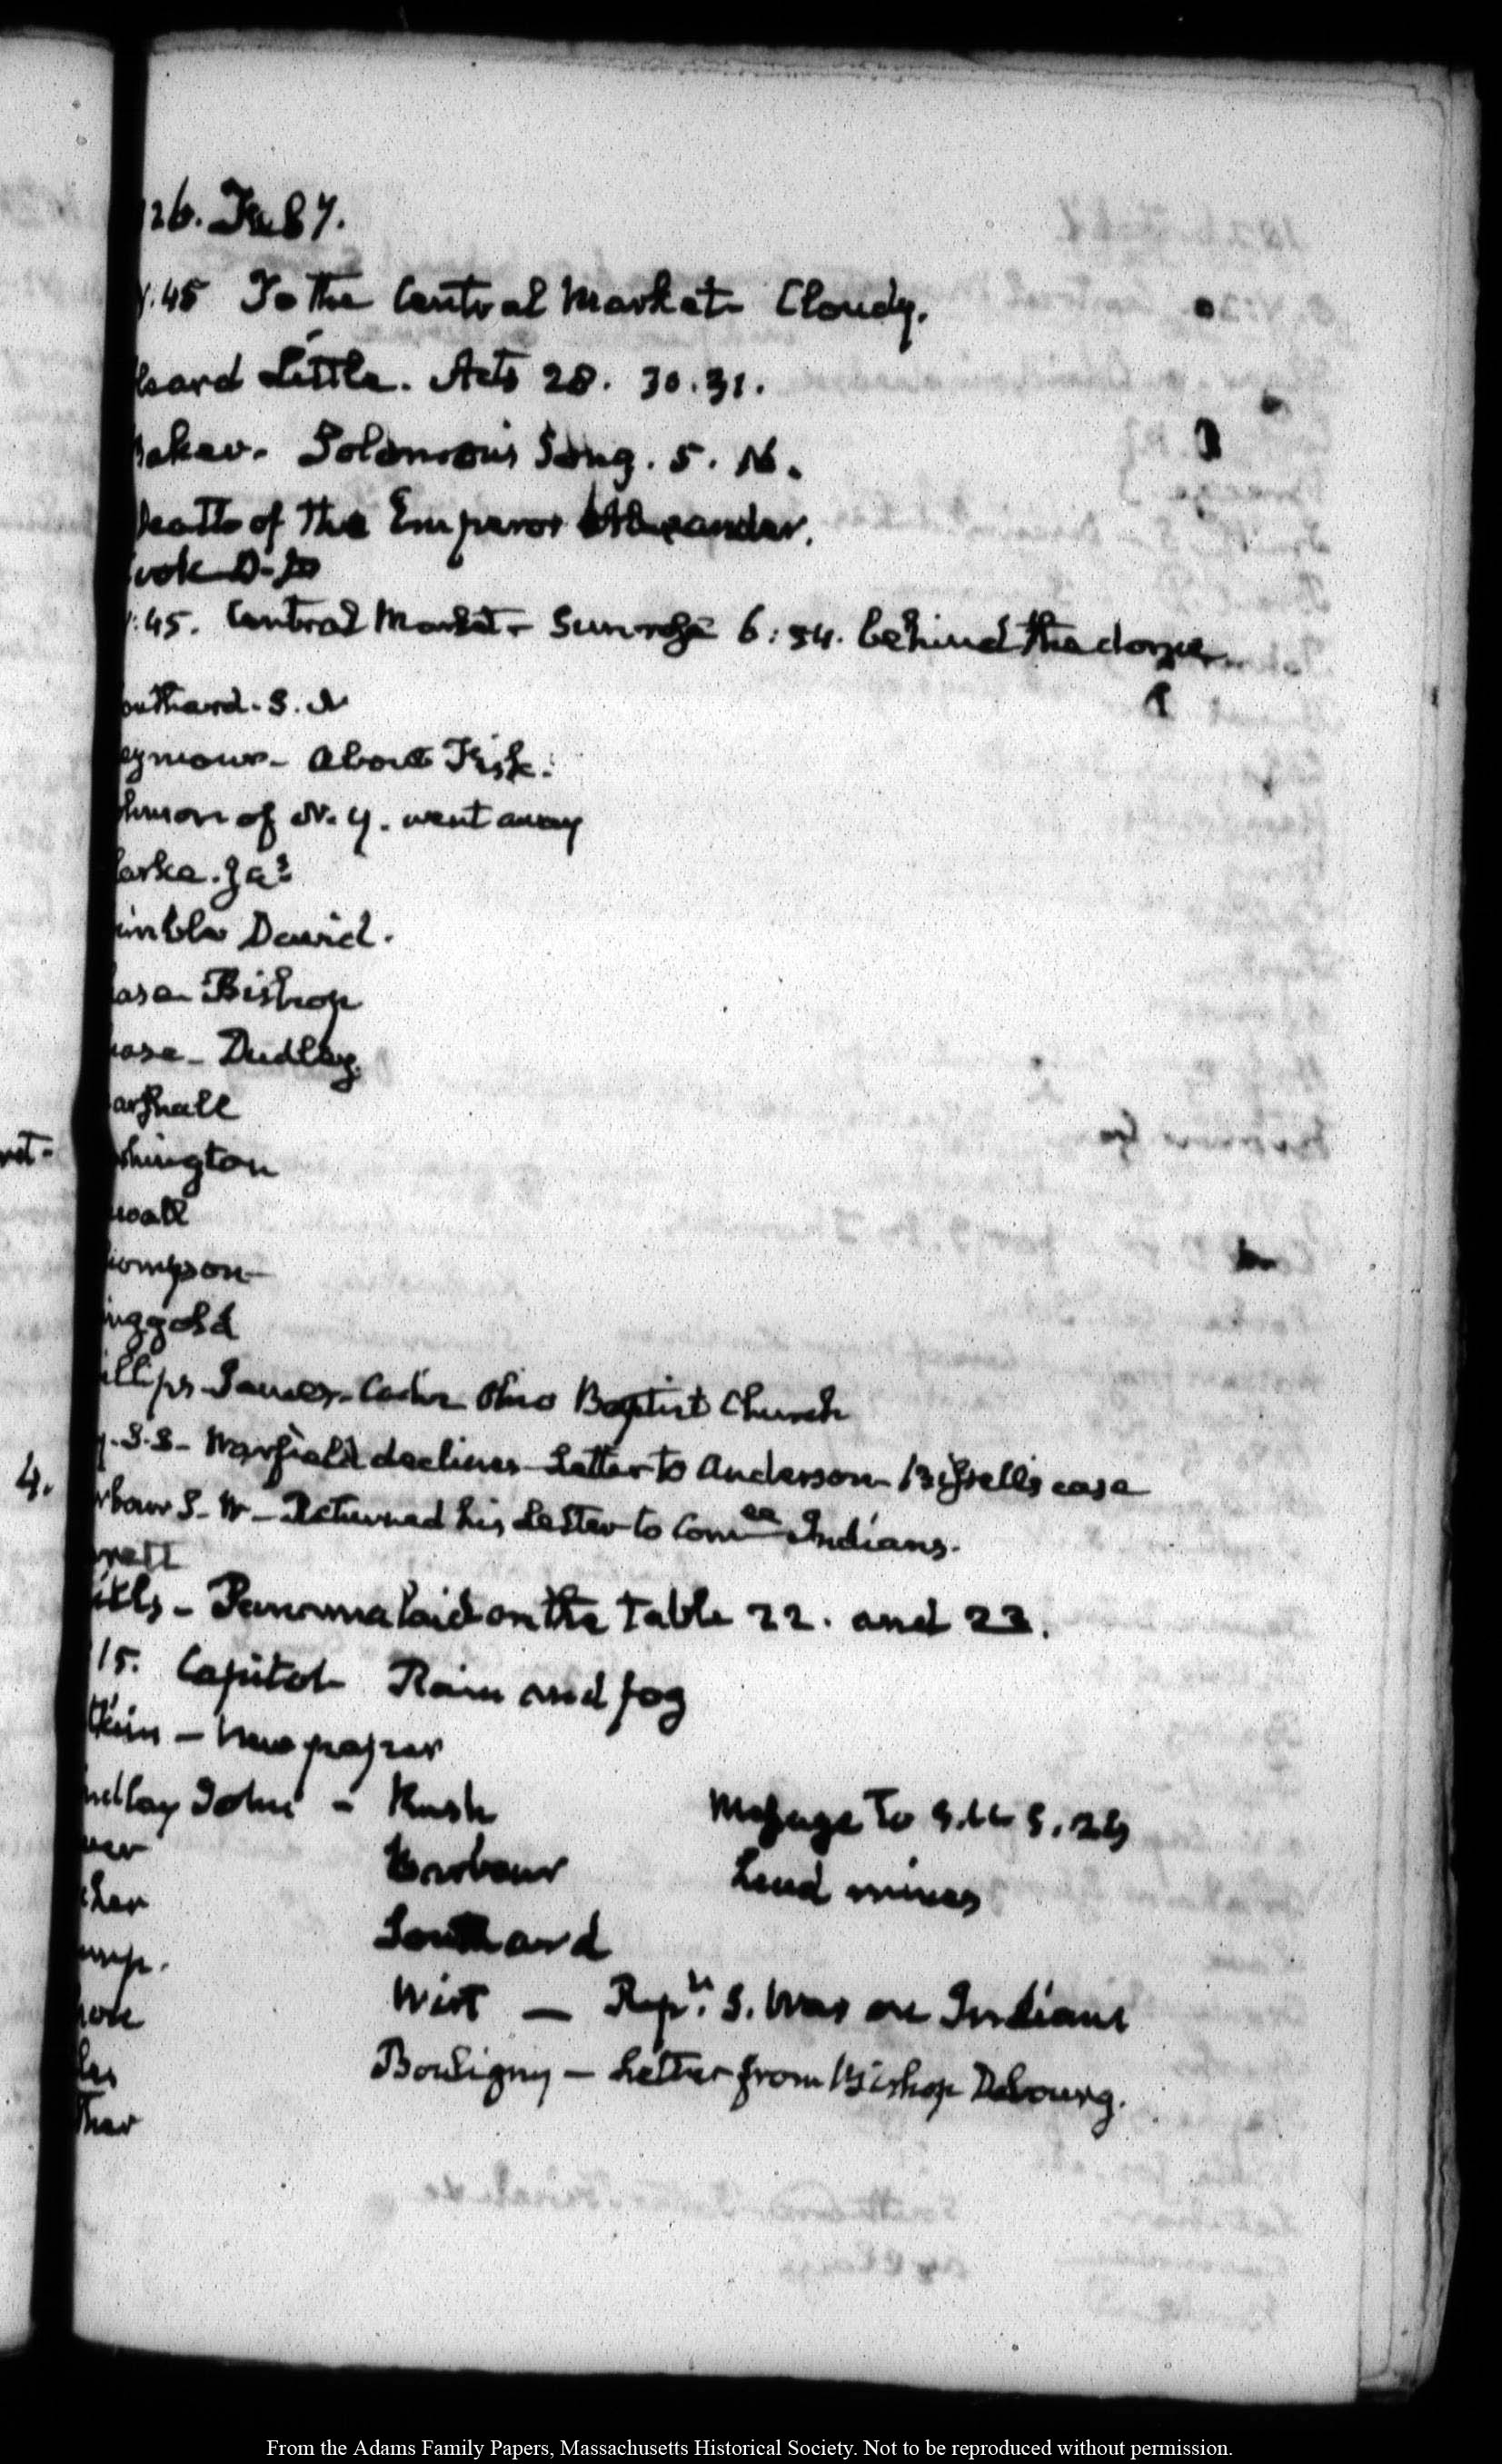 26. Feby.
:45 To the Central Market Cloudy.
heard Little. Acts 28. 30.31.
Baker. Solomon's Song. 5. 16.
Death of the Emperor Alexander.
:45. Central Market - Sunrise 6:54. behind the dome
outhard. S. N
eymour - about Fisk.
ohnson of N.Y. went away
larke. Jas
imble David.
hase Bishop
hase - Dudley.
arshall
shington
uvall
hompson
inggold
illips James - Cadiz Ohio Baptist Church
y. S.S - Warfield declines Letter to Anderson Bissell's case
rbour S. W - Returned his Letter to Comee Indians.
rrett
ills - Panama laid on the table 22. and 23.
15. Capitol Rain and fog
tkin - Newspaper
ndlay John - Rush Message to S.U.S. 24
ver Barbour Lead mines
cher Southard
Wirt — Rept. S. War on Indians
Bouligny — Letter from Bishop Dubourg.
ther
ret-
4.
From the Adams Family Papers, Massachusetts Historical Society. Not to be reproduced without permission.